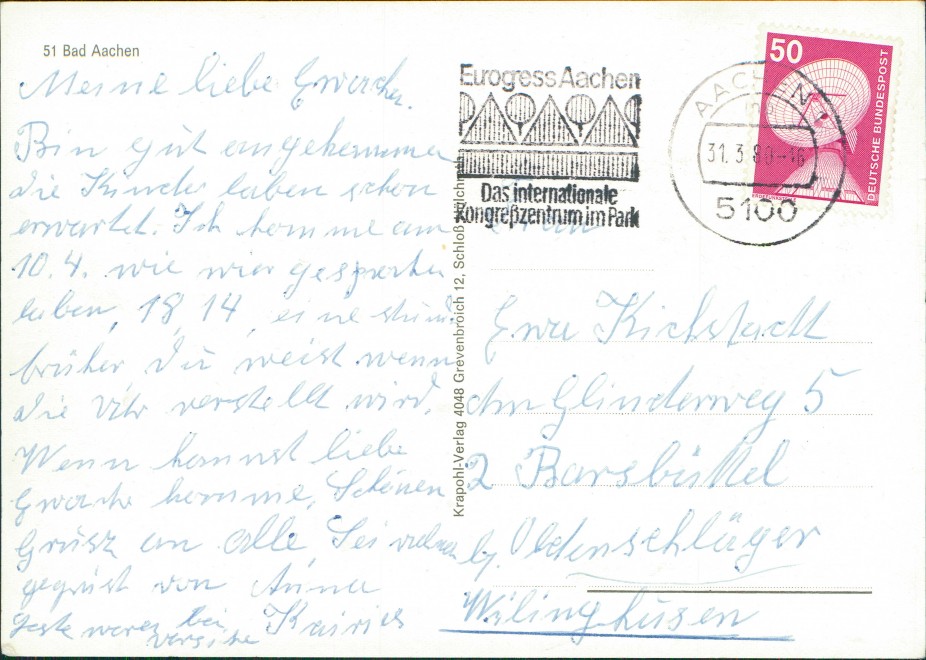 51 Bad Aachen
Meine liebe Ewache.
Bin gut angekommen
die Kinder laben schon
erwartet. Ich komme am
10.4. wie wier gesprochen
laben, 18 14, eine stund
brüher du weist wenn
die Uhr verstellt wird.
Wenn kommst liebe
komme. Schönen
Grüsz an alle Sei
gegrüst von Anna
waren bei Kairies
Eurogress Aachen
Das internationale
Kongreßzentrum im Park
AACHEN 1
31.3.80-16
5100
50
DEUTSCHE BUNDESPOST
Krapohl-Verlag 4048 Grevenbroich 12, Schloß
Frau
Ewa Kichstadt
Am Glinderweg 5
2 Barsbüttel
bz. Obdenschläger
Wilinghusen